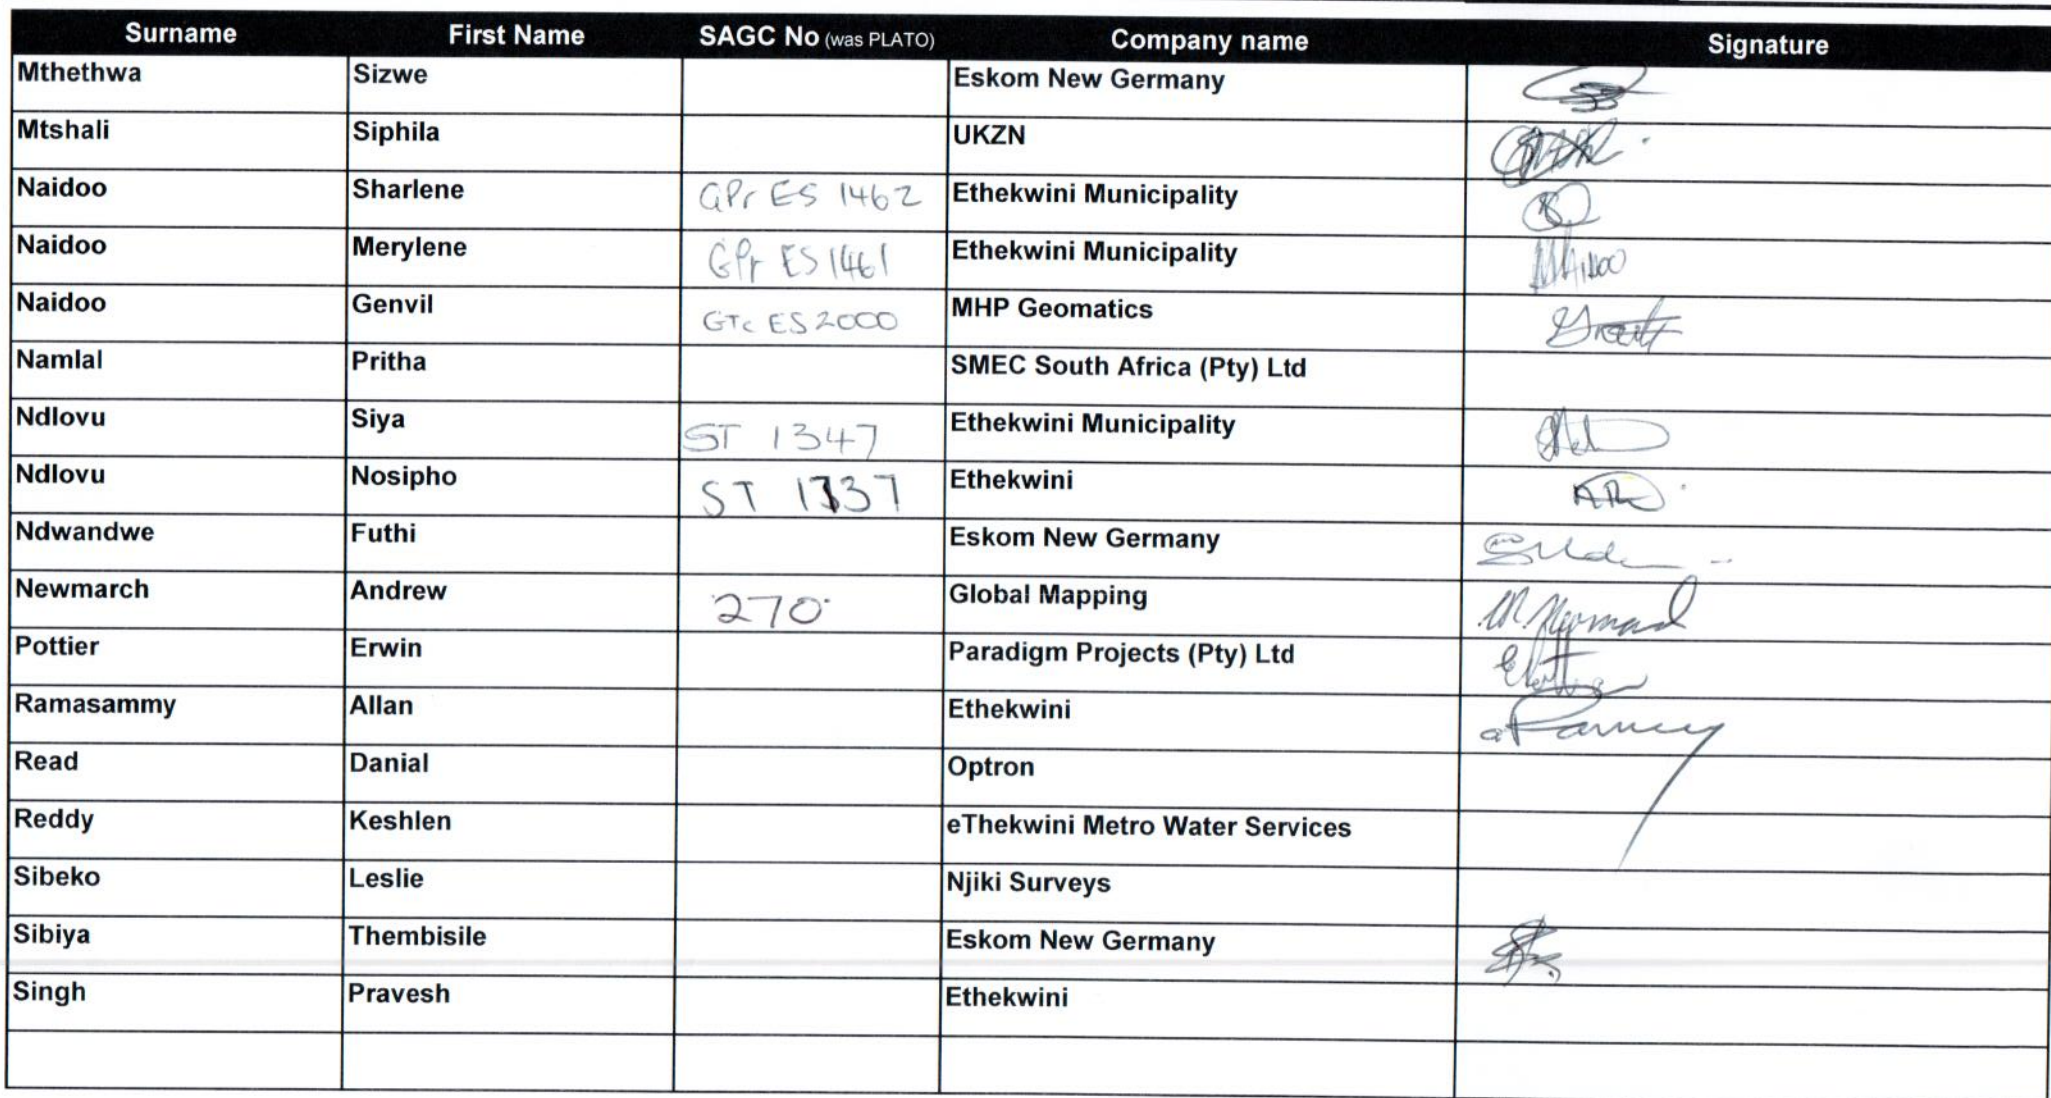 Surname First Name SAGC No (was PLATO) Company name Signature
Mthethwa Sizwe Eskom New Germany
Mtshali Siphila UKZN
Naidoo Sharlene GPr ES 1462 Ethekwini Municipality
Naidoo Merylene GPr ES 1461 Ethekwini Municipality MNaidoo
Naidoo Genvil GTc ES 2000 MHP Geomatics
Namlal Pritha SMEC South Africa (Pty) Ltd
Ndlovu Siya ST 1347 Ethekwini Municipality
Ndlovu Nosipho ST 1337 Ethekwini
Ndwandwe Futhi Eskom New Germany
Newmarch Andrew 270 Global Mapping
Pottier Erwin Paradigm Projects (Pty) Ltd
Ramasammy Allan Ethekwini
Read Danial Optron
Reddy Keshlen eThekwini Metro Water Services
Sibeko Leslie Njiki Surveys
Sibiya Thembisile Eskom New Germany
Singh Pravesh Ethekwini